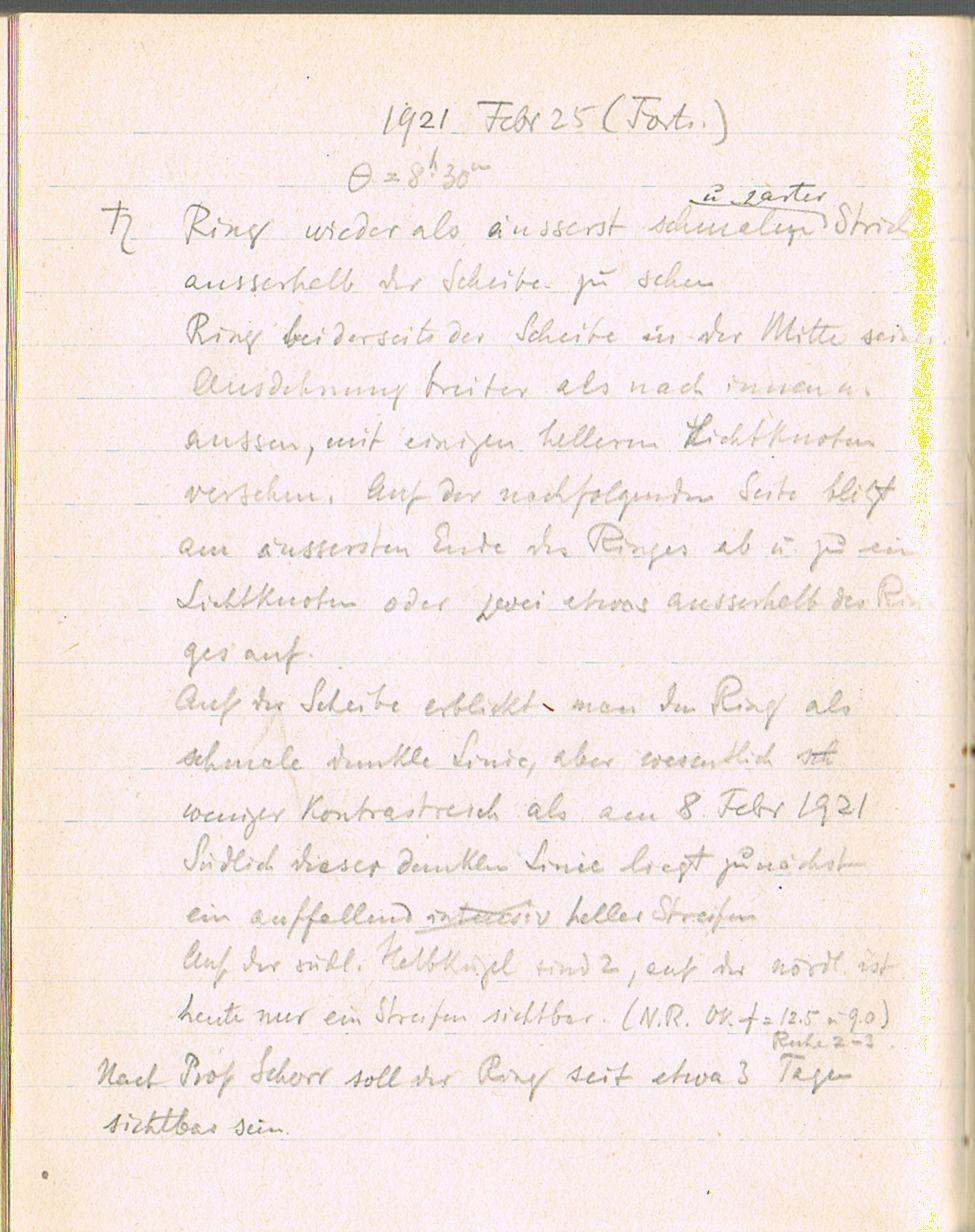 1921 Febr 25 (Forts.)
θ = 8h 30m
u. zarter
♄ Ring wieder als äusserst schmaler Strich
ausserhalb der Scheibe zu sehen
Ring beiderseits der Scheibe in der Mitte seiner
Ausdehnung breiter als nach innen u.
aussen, mit einigen helleren Lichtknoten
versehen. Auf der nachfolgenden Seite blitzt
am äussersten Ende des Ringes ab u. zu ein
Lichtknoten oder zwei etwas ausserhalb des Rin
ges auf.
Auf der Scheibe erblickt man den Ring als
schmale dunkle Linie, aber wesentlich
weniger Kontrastreich als am 8. Febr 1921
Südlich dieser dunklen Linie liegt zunächst
ein auffallend intensiv heller Streifen
Auf der südl. Halbkugel sind 2, auf der nördl. ist
heute nur ein Streifen sichtbar. (N.R. Ok. f = 12.5 u 9.0)
Ruhe 2-3.
Nach Prof Schorr soll der Ring seit etwa 3 Tagen
sichtbar sein.